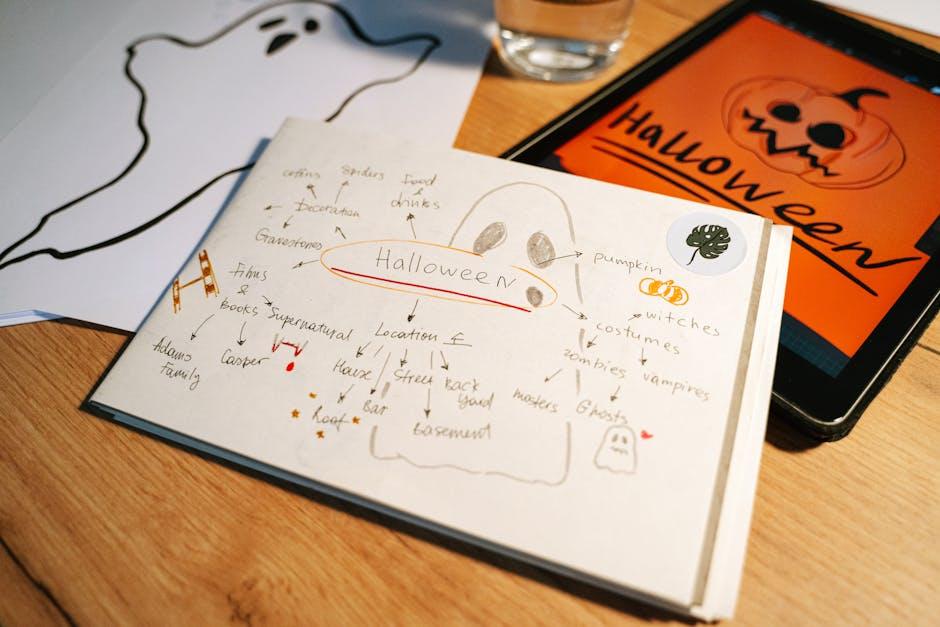 coffins
spiders
Food
&
drinks
Decoration
Gravestones
Halloween
pumpkin
Films
&
Books
Supernatural
Adams
Family
Casper
Location
House
Street
Back
Yard
Roof
Bar
Basement
costumes
witches
zombies
vampires
Ghosts
Halloween